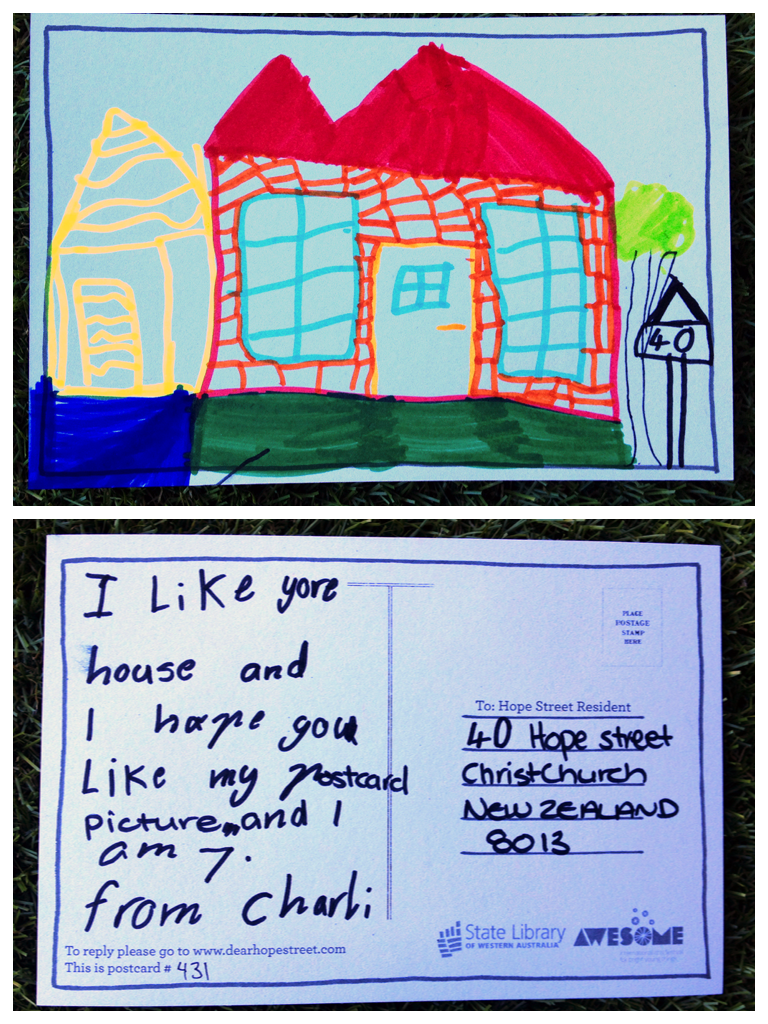 40
I Like yore
house and
I hope you
Like my postcard
picture and I
am 7.
from Charli
To reply please go to www.dearhopestreet.com
This is postcard # 431
PLACE
POSTAGE
STAMP
HERE
To: Hope Street Resident
40 Hope street
ChristChurch
NEW ZEALAND
8013
State Library
OF WESTERN AUSTRALIA
AWESOME